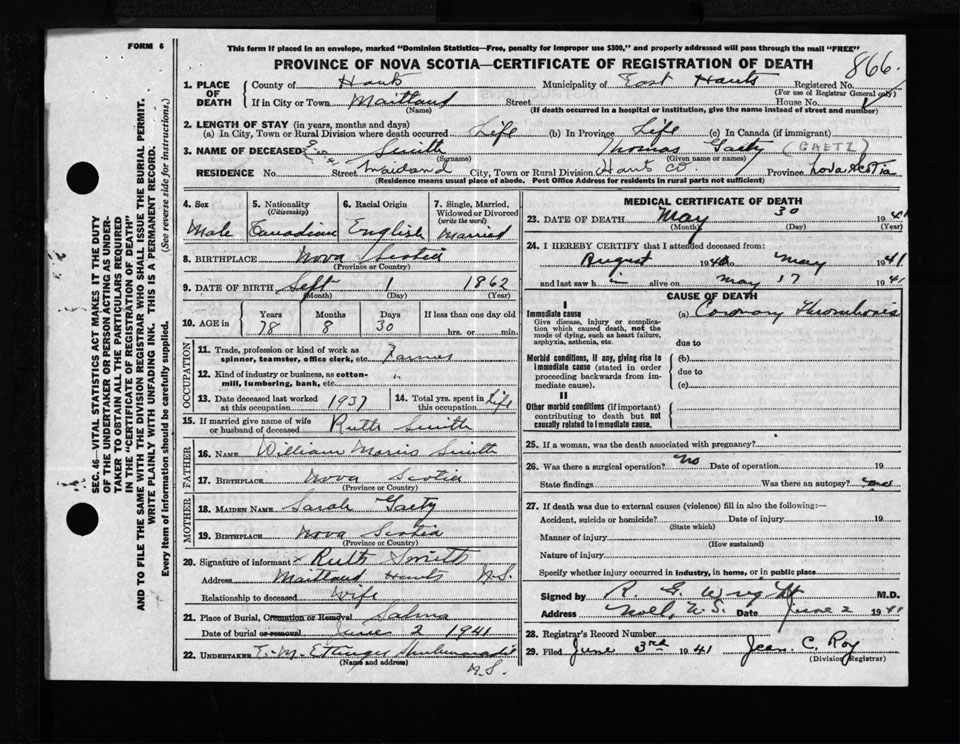 FORM 6
This form if placed in an envelope, marked "Dominion Statistics—Free, penalty for improper use $300," and properly addressed will pass through the mail "FREE"
PROVINCE OF NOVA SCOTIA—CERTIFICATE OF REGISTRATION OF DEATH
866.
1. PLACE OF DEATH County of Hants Municipality of East Hants Registered No.
(For use of Registrar General only)
If in City or Town Maitland Street House No.
(Name) (If death occurred in a hospital or institution, give the name instead of street and number)
2. LENGTH OF STAY (in years, months and days)
(a) In City, Town or Rural Division where death occurred Life (b) In Province Life (c) In Canada (if immigrant)
3. NAME OF DECEASED Smith Thomas Gaety (GAETZ)
(Surname) (Given name or names)
RESIDENCE No. Street Maitland City, Town or Rural Division Hants Co Province Nova Scotia
(Residence means usual place of abode. Post Office Address for residents in rural parts not sufficient)
4. Sex Male
5. Nationality (Citizenship) Canadian
6. Racial Origin English
7. Single, Married, Widowed or Divorced (write the word) Married
8. BIRTHPLACE Nova Scotia
(Province or Country)
9. DATE OF BIRTH Sept 1 1862
(Month) (Day) (Year)
10. AGE in Years 78 Months 8 Days 30 If less than one day old hrs. or min.
OCCUPATION
11. Trade, profession or kind of work as spinner, teamster, office clerk, etc. Farmer
12. Kind of industry or business, as cotton-mill, lumbering, bank, etc. "
13. Date deceased last worked at this occupation 1937
14. Total yrs. spent in this occupation Life
15. If married give name of wife or husband of deceased Ruth Smith
FATHER
16. NAME William Morris Smith
17. BIRTHPLACE Nova Scotia
(Province or Country)
MOTHER
18. MAIDEN NAME Sarah Gaety
19. BIRTHPLACE Nova Scotia
(Province or Country)
20. Signature of informant x Ruth Smith
Address Maitland Hants N.S.
Relationship to deceased Wife
21. Place of Burial, Cremation or Removal Selma
Date of burial or removal June 2 1941
22. UNDERTAKER T. M. Ettinger Shubenacadie
(Name and address) N.S.
MEDICAL CERTIFICATE OF DEATH
23. DATE OF DEATH May 30 1941
(Month) (Day) (Year)
24. I HEREBY CERTIFY that I attended deceased from:
August 1940 to May 1941
and last saw h im alive on May 17 1941
CAUSE OF DEATH
I
Immediate cause
Give disease, injury or complication which caused death, not the mode of dying, such as heart failure, asphyxia, asthenia, etc.
(a) Coronary Thrombosis
due to
Morbid conditions, if any, giving rise to immediate cause (stated in order proceeding backwards from immediate cause).
(b)
due to
(c)
II
Other morbid conditions (if important) contributing to death but not causally related to immediate cause.
25. If a woman, was the death associated with pregnancy?
26. Was there a surgical operation? No Date of operation 19
State findings Was there an autopsy?
27. If death was due to external causes (violence) fill in also the following:—
Accident, suicide or homicide? Date of injury 19
(State which)
Manner of injury
(How sustained)
Nature of injury
Specify whether injury occurred in industry, in home, or in public place
Signed by R. G. Wright M.D.
Address Noel, N.S. Date June 2 1941
28. Registrar's Record Number
29. Filed June 3rd 1941 Jean C. Roy
(Division Registrar)
SEC. 46—VITAL STATISTICS ACT MAKES IT THE DUTY
OF THE UNDERTAKER OR PERSON ACTING AS UNDER-
TAKER TO OBTAIN ALL THE PARTICULARS REQUIRED
IN THE "CERTIFICATE OF REGISTRATION OF DEATH"
AND TO FILE THE SAME WITH THE DIVISION REGISTRAR WHO SHALL ISSUE THE BURIAL PERMIT.
WRITE PLAINLY WITH UNFADING INK. THIS IS A PERMANENT RECORD.
Every item of information should be carefully supplied. (See reverse side for instructions.)